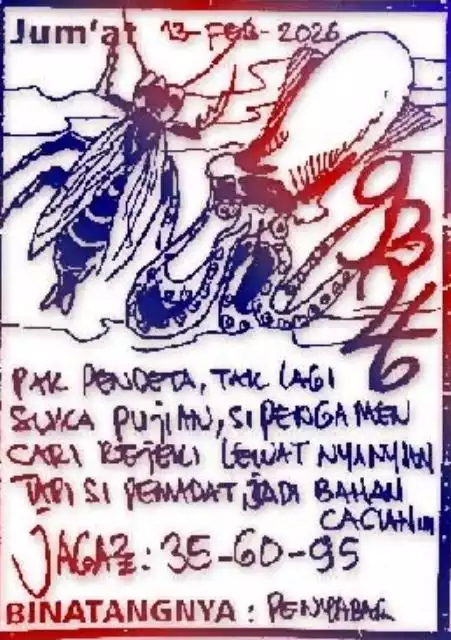 Jum'at 13-FEB-2026
PAK PENDETA, TAK LAGI
SUKA PUJIAN, SI PENGAMEN
CARI REJEKI LEWAT NYANYIAN
TAPI SI PEMADAT, JADI BAHAN
CACIAN
JAGA2: 35-60-95
BINATANGNYA: